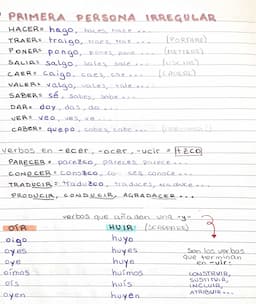 PRIMERA PERSONA IRREGULAR
HACER = hago, haces, hace...
TRAER = traigo, traes, trae... (PORTARE)
PONER = pongo, pones, pone... (METTERE)
SALIR = salgo, sales, sale... (USCIRE)
CAER = caigo, caes, cae... (CADERE)
VALER = valgo, vales, vale...
SABER = sé, sabes, sabe...
DAR = doy, das, da...
VER = veo, ves, ve...
CABER = quepo, cabes, cabe...
verbos en -ecer, -ocer, -ucir = +zco
PARECER = parezco, pareces, parece...
CONOCER = conozco, conoces, conoce...
TRADUCIR = traduzco, traduces, traduce...
PRODUCIR, CONDUCIR, AGRADACER...
verbos que añaden una -y-
OÍR HUIR (SCAPPARE)
oigo huyo
oyes huyes
oye huye
oímos huimos
oís huís
oyen huyen
Son los verbos
que terminan
en -uir:
CONSTRUIR,
SUSTITUIR,
INCLUIR,
ATRIBUIR...